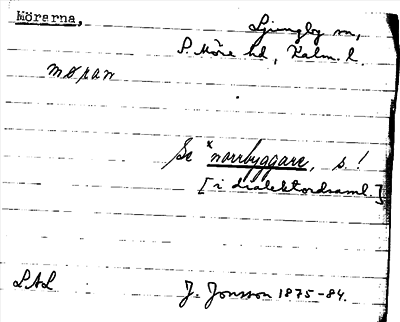 Mörarna,
Ljungby sn,
S. Möre hd, Kalm. l.
møran
Se *norrbyggare, s.!
[i dialektordsaml.]
LAL
J. Jonsson 1875-84.